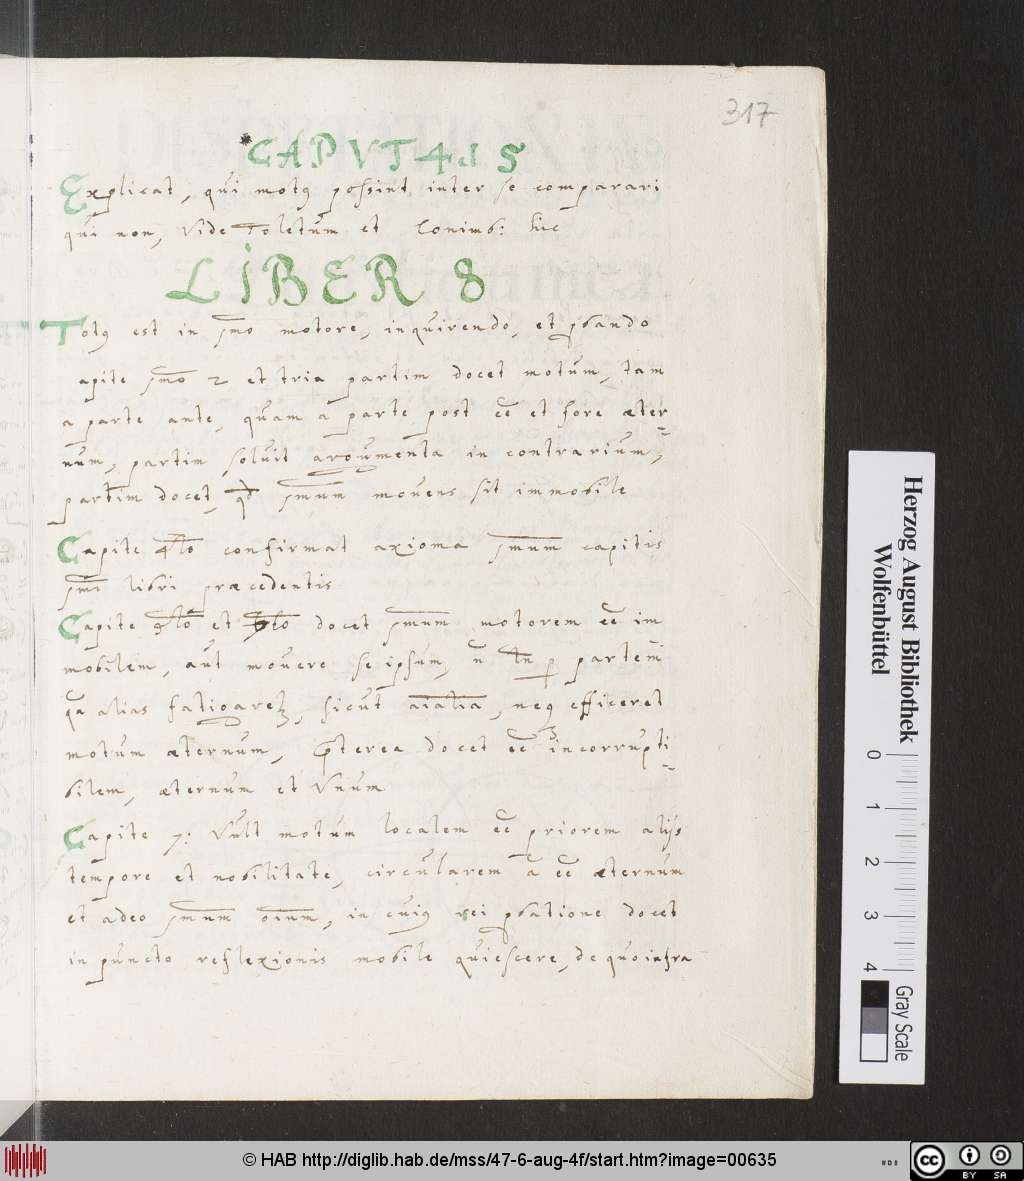 317
CAPVT 4 d 5
Explicat, qui motꝰ possint inter se comparari
qui non, Vide Toletum et Conimb: hic
LIBER 8
Totꝰ est in p̄mo motore, inquirendo, et ꝓbando
apite p̄mo 2 et tria partim docet motum, tam
a parte ante, quam a parte post eē et fore æter-
num, partim soluit argumenta in contrarium,
partim docet, qđ p̄mum mouens sit immobile
Capite 4to confirmat axioma p̄mum capitis
p̄mi libri præcedentis
Capite 5to et 6to docet p̄mum motorem eē im
mobilem, aut mouere se ipsum, n̄ tn̄ ꝑ partem
qa alias fatigaretʒ, sicut aīalia, neqꝫ efficeret
motum æternum, Præterea docet eē incorrupti-
bilem, æternum et Vnum
Capite 7: Vult motum localem eē priorem alijs
tempore et nobilitate, circularem ā eē æternum
et adeo p̄mum oīum, in cuiꝰ rei ꝓbatione docet
in puncto reflexionis mobile quiescere, de quo infra
Herzog August Bibliothek
Wolfenbüttel
0 1 2 3 4
Gray Scale
© HAB http://diglib.hab.de/mss/47-6-aug-4f/start.htm?image=00635
cc BY SA